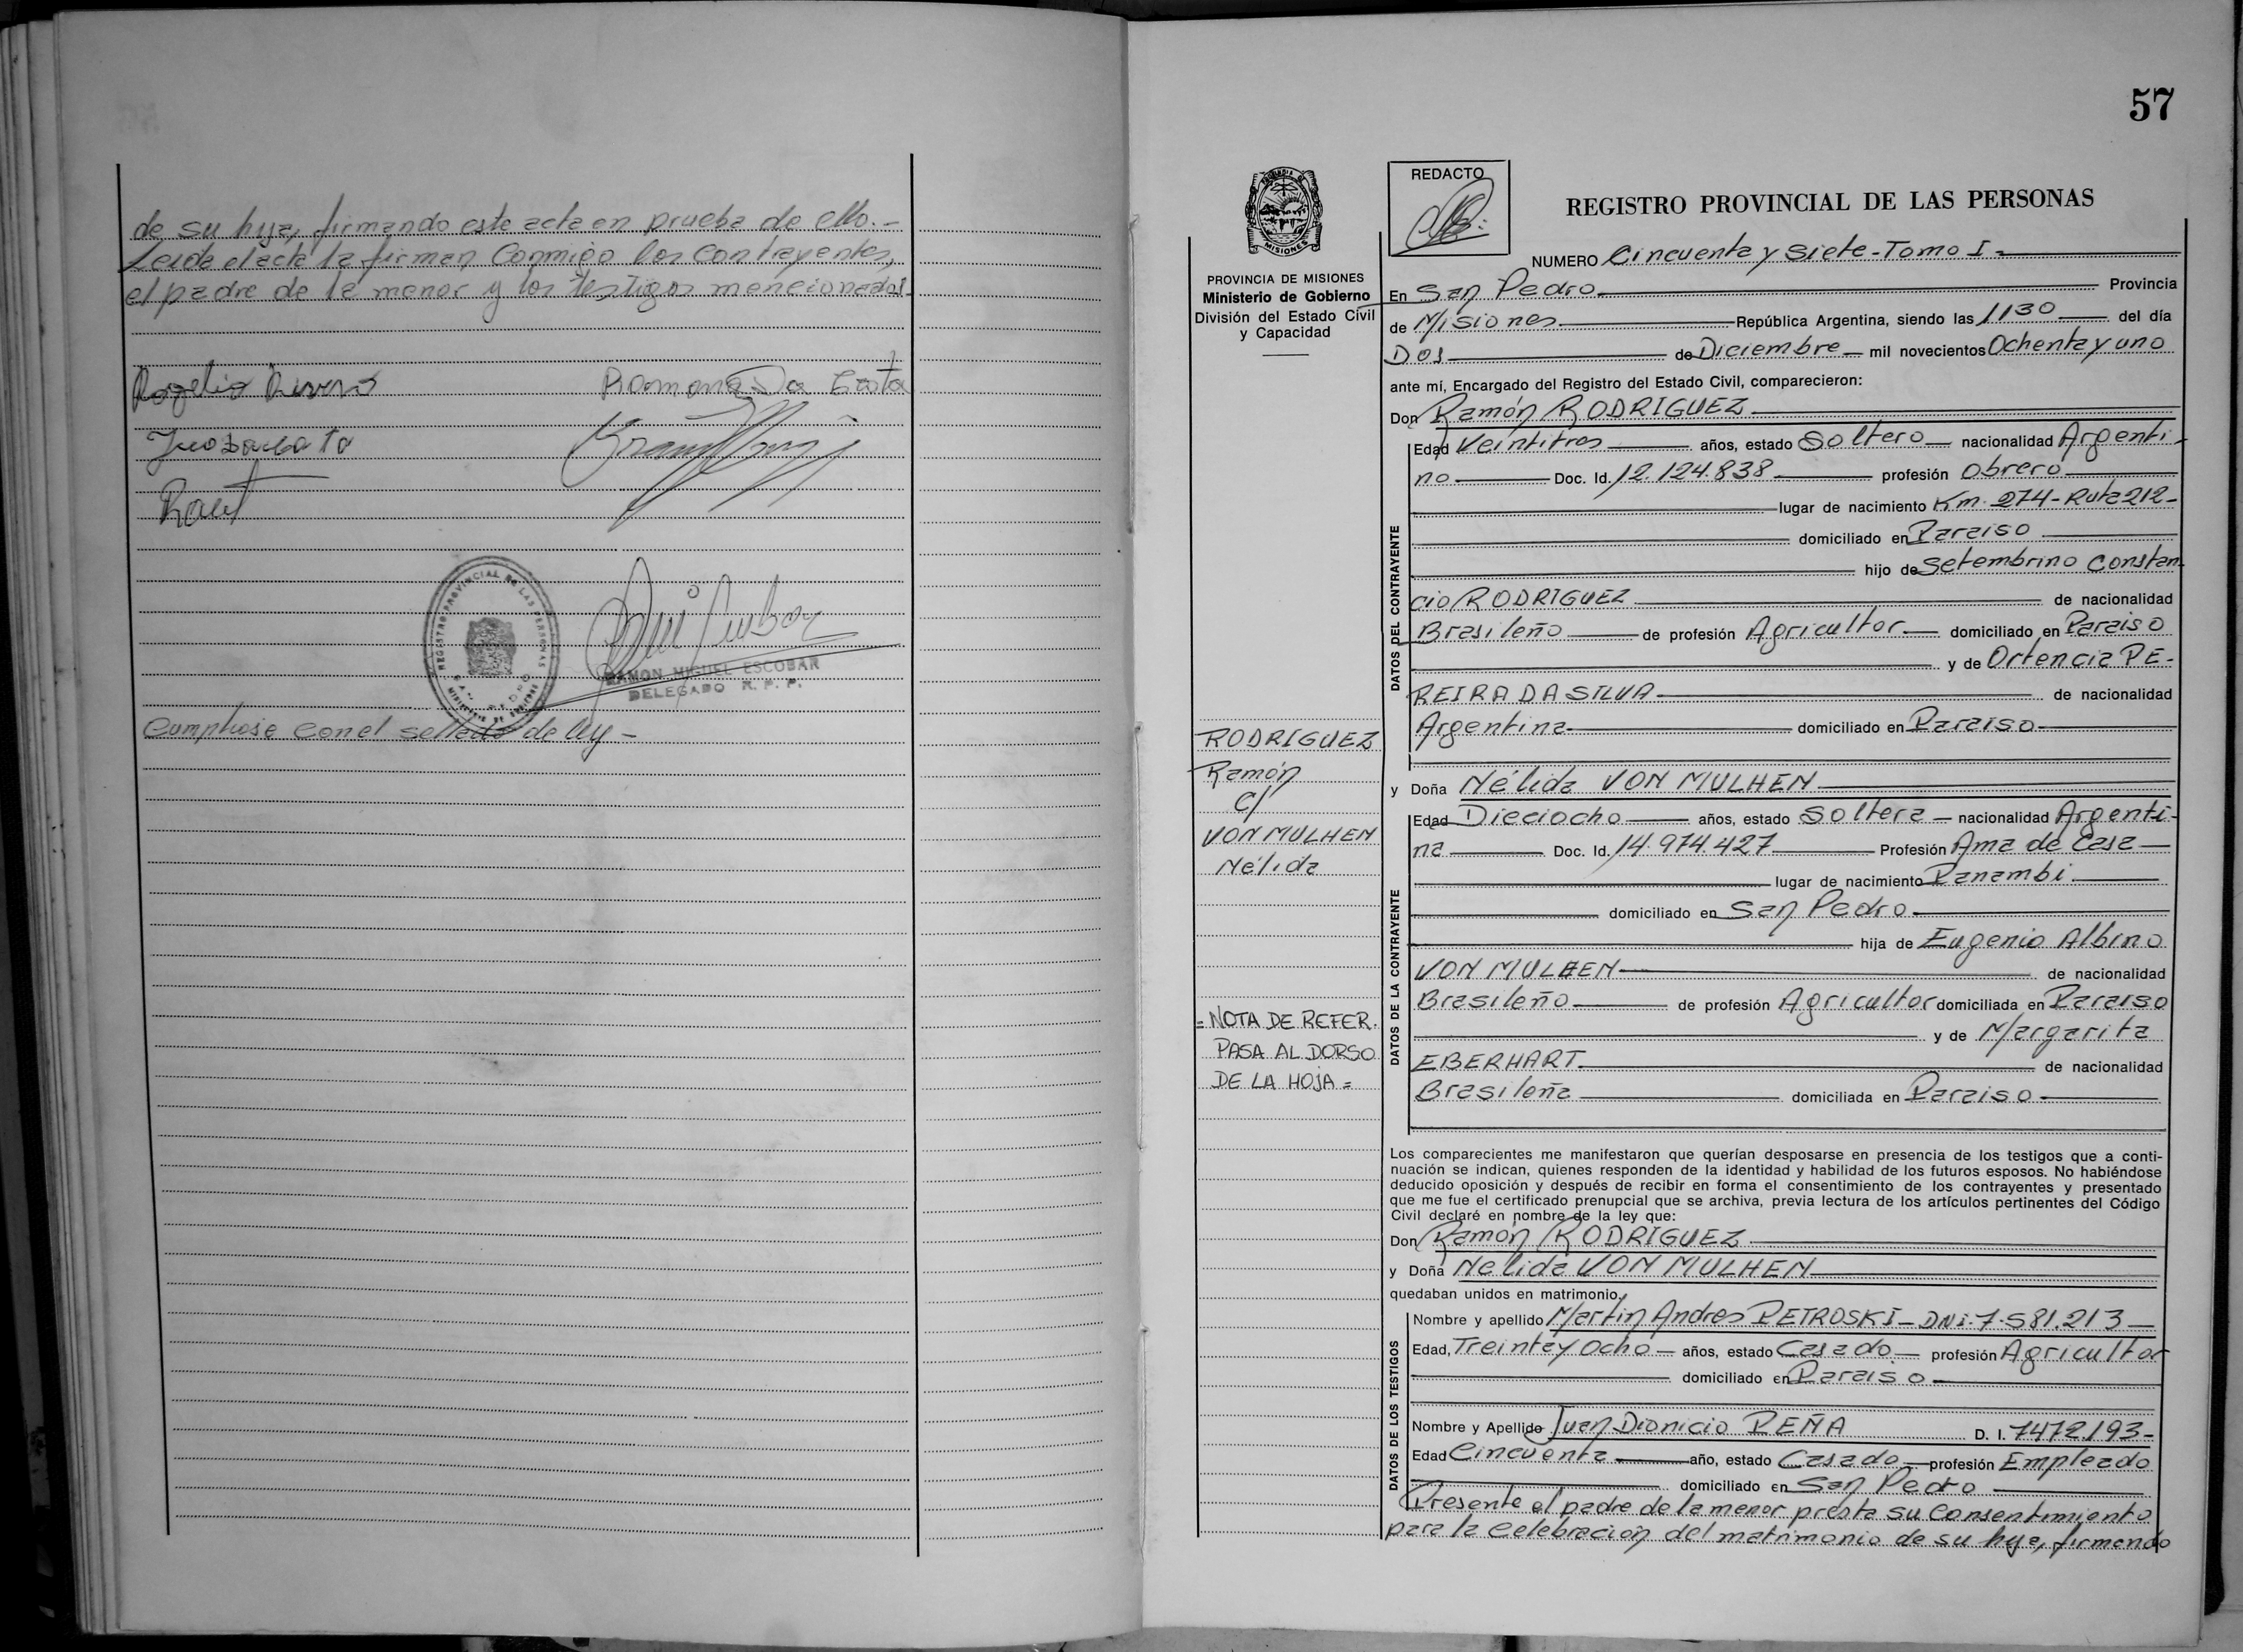 de su hija, firmando este acta en prueba de ello.-
Leida el acta la firman Conmigo los Contrayentes,
el padre de la menor y los testigos mencionados.-
Ramona Da Costa
REGISTRO PROVINCIAL DE LAS PERSONAS
RAMON MIGUEL ESCOBAR
DELEGADO R. P. P.
Cumplióse con el sellado de ley -
57
PROVINCIA DE MISIONES
Ministerio de Gobierno
División del Estado Civil
y Capacidad
RODRIGUEZ
Ramón
C/
VON MULHEN
Nélida
= NOTA DE REFER.
PASA AL DORSO
DE LA HOJA =
REDACTO
REGISTRO PROVINCIAL DE LAS PERSONAS
NUMERO Cincuenta y Siete - Tomo I -
En San Pedro Provincia
de Misiones República Argentina, siendo las 1130 del día
Dos de Diciembre mil novecientos Ochenta y uno
ante mí, Encargado del Registro del Estado Civil, comparecieron:
Don Ramón RODRIGUEZ
DATOS DEL CONTRAYENTE
Edad Veintitres años, estado Soltero nacionalidad Argenti-
no Doc. Id. 12.124.838 profesión Obrero
lugar de nacimiento Km. 274 - Ruta 212 -
domiciliado en Paraiso
hijo de Setembrino Constan
cio RODRIGUEZ de nacionalidad
Brasileño de profesión Agricultor domiciliado en Paraiso
y de Ortencia PE-
REIRA DA SILVA de nacionalidad
Argentina domiciliado en Paraiso
y Doña Nélida VON MULHEN
DATOS DE LA CONTRAYENTE
Edad Dieciocho años, estado Soltera nacionalidad Argenti-
na Doc. Id. 14.974.427 Profesión Ama de Casa
lugar de nacimiento Panambi
domiciliado en San Pedro
hija de Eugenio Albino
VON MULHEN de nacionalidad
Brasileño de profesión Agricultor domiciliada en Paraiso
y de Margarita
EBERHART de nacionalidad
Brasileña domiciliada en Paraiso
Los comparecientes me manifestaron que querían desposarse en presencia de los testigos que a conti-
nuación se indican, quienes responden de la identidad y habilidad de los futuros esposos. No habiéndose
deducido oposición y después de recibir en forma el consentimiento de los contrayentes y presentado
que me fue el certificado prenupcial que se archiva, previa lectura de los artículos pertinentes del Código
Civil declaré en nombre de la ley que:
Don Ramón RODRIGUEZ
y Doña Nelida VON MULHEN
quedaban unidos en matrimonio.
DATOS DE LOS TESTIGOS
Nombre y apellido Martin Andres PETROSKI - DNi. 7.581.213
Edad, Treinta y Ocho años, estado Casado profesión Agricultor
domiciliado en Paraiso
Nombre y Apellido Juan Dionicio PEÑA D. I. 7472.193-
Edad Cincuenta año, estado Casado profesión Empleado
domiciliado en San Pedro
Presente el padre de la menor presta su Consentimiento
para la Celebración del matrimonio de su hija, firmando